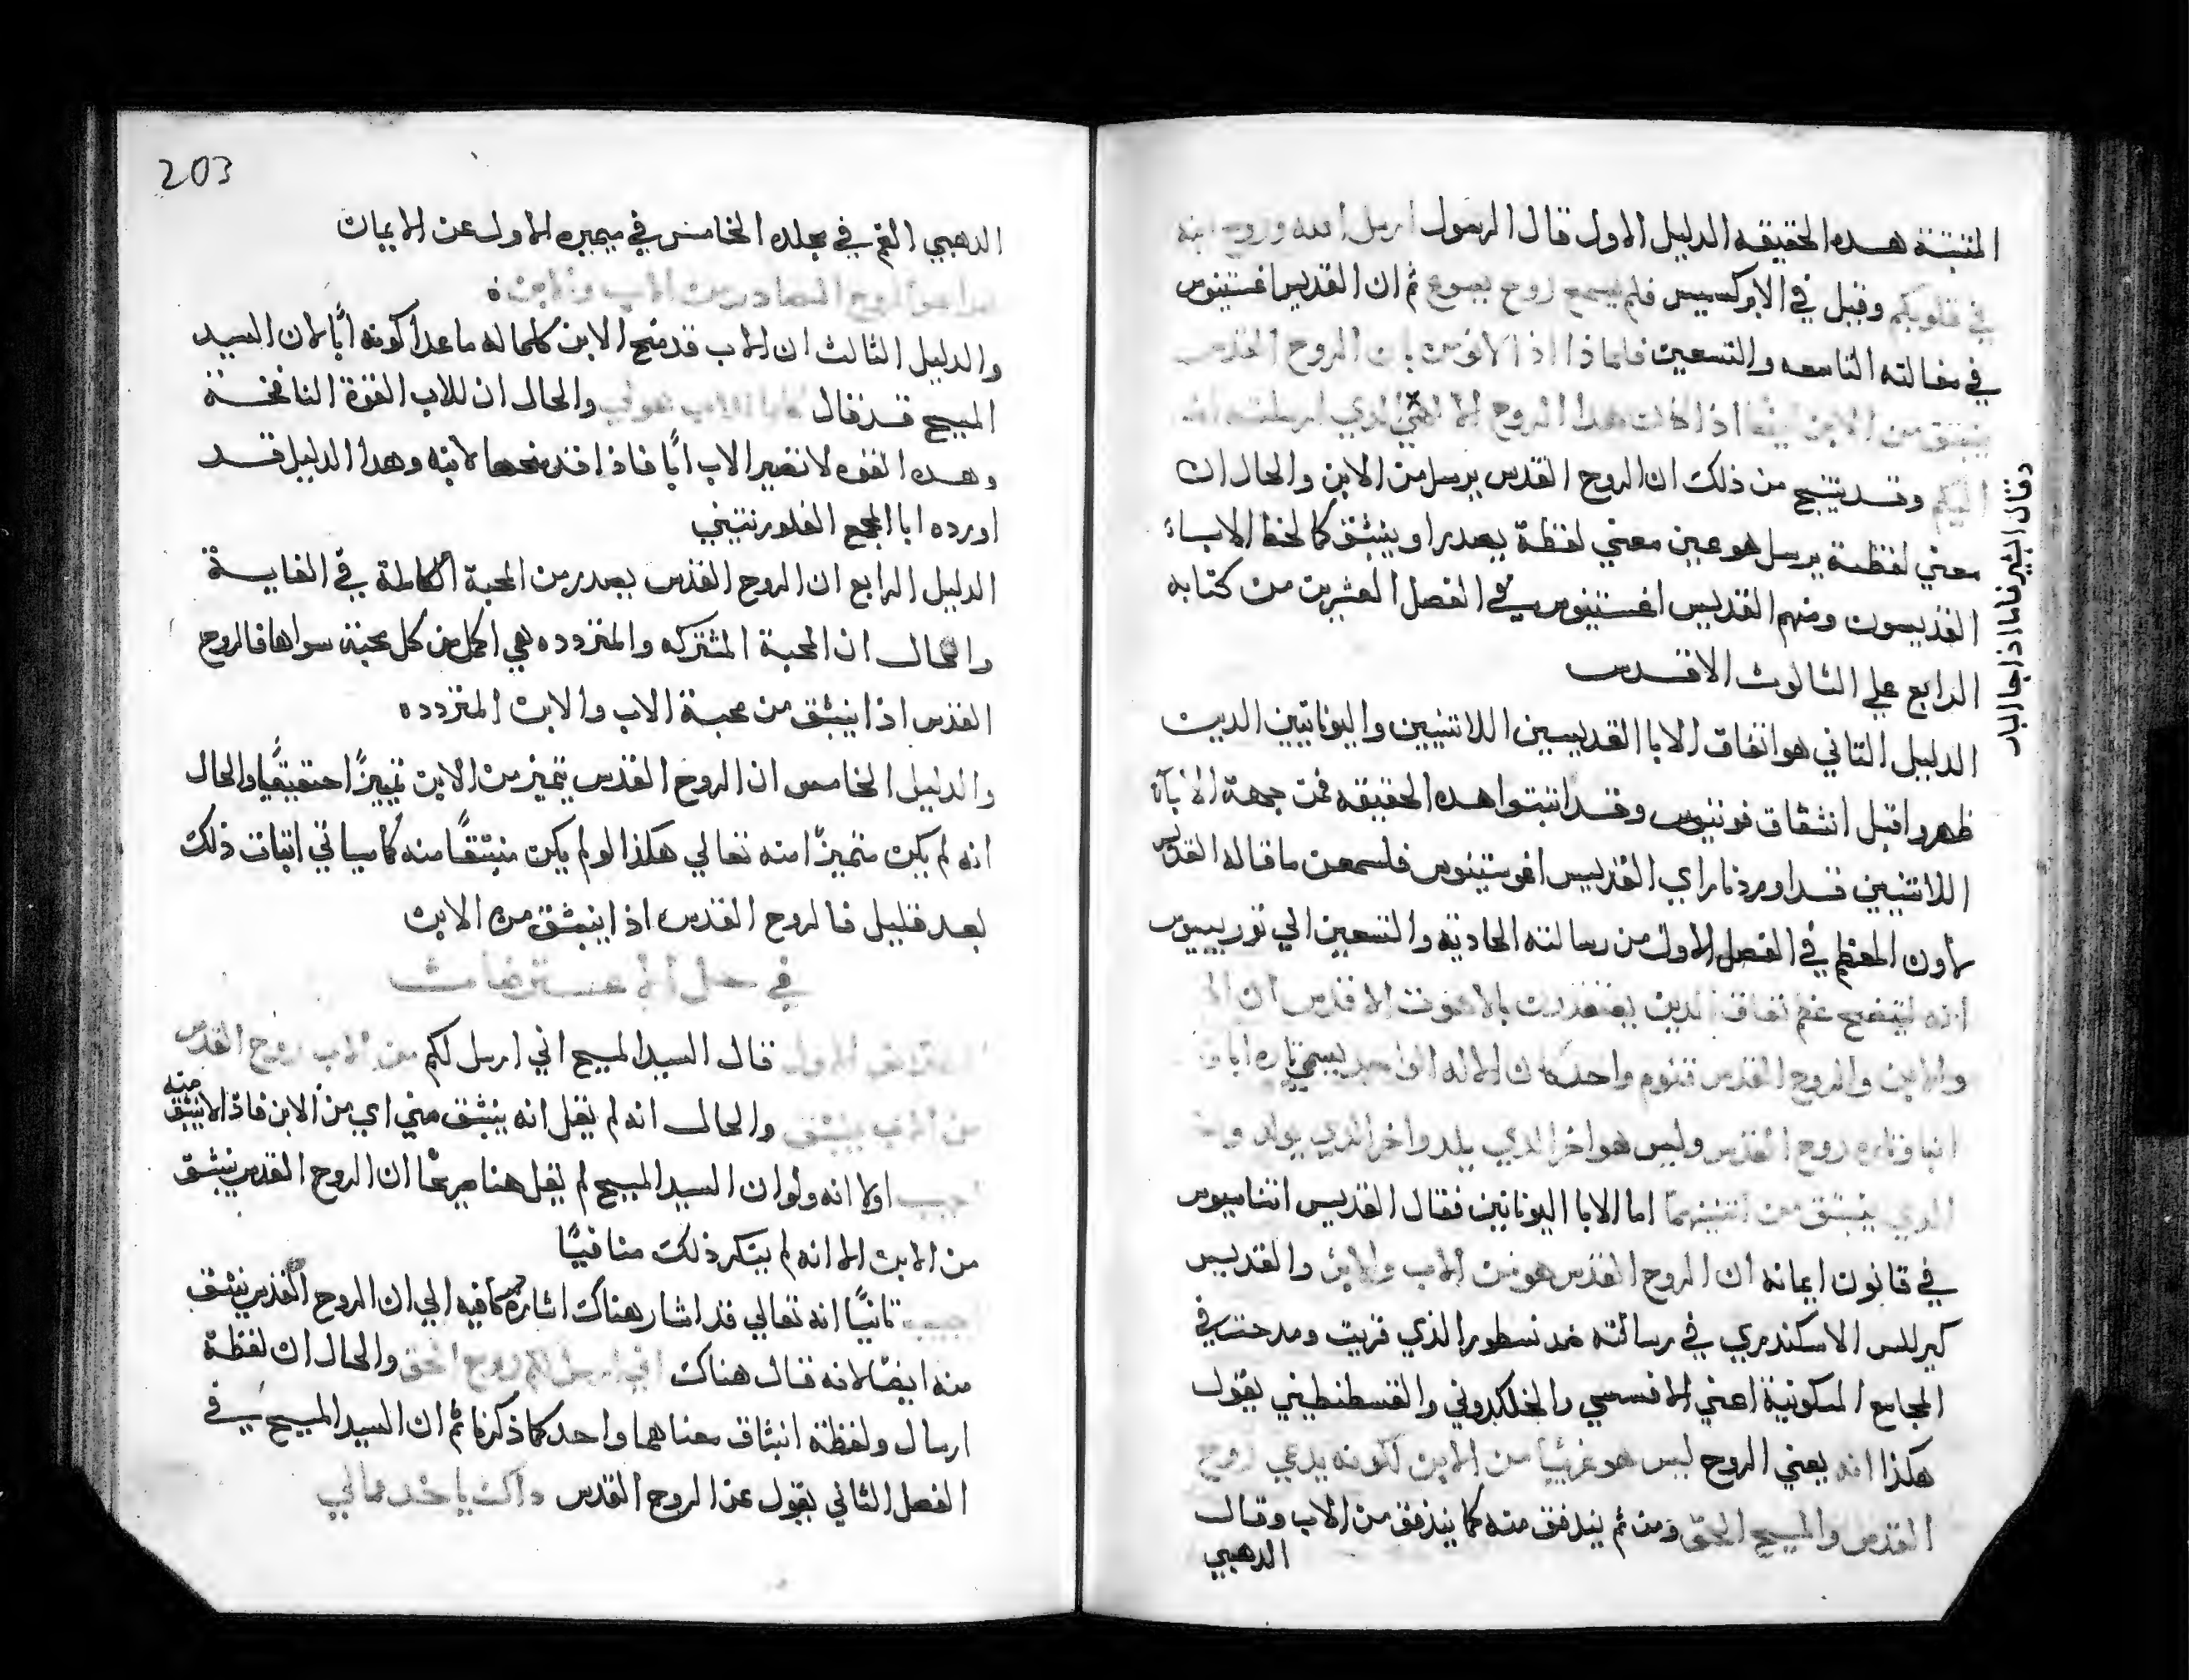 المثبتة هده الحقيقه الدليل الاول قال الرسول ارسل الله روح ابنه
في قلوبكم وقيل في الابركسيس فلم يسمح روح يسوع ثم ان القديس اغستينوس
في مقالته التاسعه والتسعين فلماذا اذا لانومن بان الروح القدس
ينبثق من الابن ايضا اذ كان هدا الروح الالهي الدي ارسلته
اليكم وقد ينتج من ذلك ان الروح القدس يرسل من الابن والحال ان
معني لفظة يرسل هو عين معني لفظة يصدر او ينبثق كما لحظ الاباء
القديسون ومنهم القديس اغستينوس في الفصل العشرين من كتابه
الرابع علي الثالوث الاقدس
الدليل التاني هو اتفاق الابا القديسين اللاتنيين واليونانيين الدين
ظهروا قبل انشقاق فوتيوس وقد اثبتوا هده الحقيقه فمن جهة الابآء
اللاتنيين قد اوردنا راي القديس اغوستينوس فلنسمعن ما قاله القديس
لاون المعظم في الفصل الاول من رسالته الحادية والتسعين الي توريبيوس
انه ليتضح عظم نفاق الدين يعتقدون بالاهوت الاقدس ان الا
والابن والروح القدس قنوم واحد كان الاله الواحد يسمي تاره ابا و
ابنا وتاره روح القدس وليس هو اخر الدي يلد واخر الدي يولد واخر
الدي ينبثق من اثنينهما اما الابا اليونانيين فقال القديس اتناسيوس
في قانون ايمانه ان الروح القدس هو من الاب والابن والقديس
كيرللس الاسكندري في رسالته ضد نسطور الذي قريت ومدحت في
المجامع المسكونية اعني الافسسي والخلكدوني والقسطنطيني يقول
هكذا انه يعني الروح ليس هو غريبا من الابن لكونه يدعي روح
القدس والمسيح الحق ومن ثم يندفق منه كما يندفق من الاب وقال
الدهبي
وقال البشير فاما اذا جا البار
203
الدهبي الفم في مجلده الخامس في ميميره الاول عن الايمان
هدا هو الروح الصادر من الاب والابن
والدليل الثالث ان الاب قد منح الابن كلما له ما عدا كونه ابًا لان السيد
المسيح قد قال كلما للاب هو لي والحال ان للاب القوة النافخة
وهده القوه لا تصير الاب ابًا فاذا قد منحها لابنه وهدا الدليل قد
اورده ابا المجمع الفلورنتيني
الدليل الرابع ان الروح القدس يصدر من المحبة الكاملة في الغاية
والحال ان المحبة المشتركه والمتردده هي اكمل من كل محبة سواها فالروح
القدس اذا ينبثق من محبة الاب والابن المتردده
والدليل الخامس ان الروح القدس يتميز من الابن تمييزًا حقيقيًا والحال
انه لم يكن متميزًا منه تعالي هكذا لو لم يكن منبثقًا منه كما سياتي اثبات ذلك
بعد قليل فالروح القدس اذا ينبثق من الابن
في حل الاعتراضات
الاول قال السيد المسيح اني ارسل لكم من الاب روح القدس
من الاب ينبثق والحال انه لم يقل انه ينبثق مني اي من الابن فاذا لا ينبثق منه
اجيب اولا انه ولو ان السيد المسيح لم يقل هنا صريحًا ان الروح القدس ينبثق
من الابن الا انه لم ينكر ذلك منافيًا
اجيب تانيًا انه تعالي قد اشار هناك اشارة كافيه الي ان الروح القدس ينبثق
منه ايضًا لانه قال هناك اني ارسل لكم روح الحق والحال ان لفظة
ارسال ولفظة انبثاق معناهما واحد كما ذكرنا ثم ان السيد المسيح في
الفصل التاني يقول عن الروح القدس داك ياخد مما لي